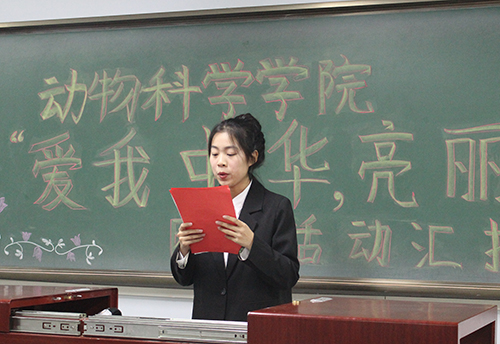 动物科学学院
“爱我中华,亮丽
活动汇报